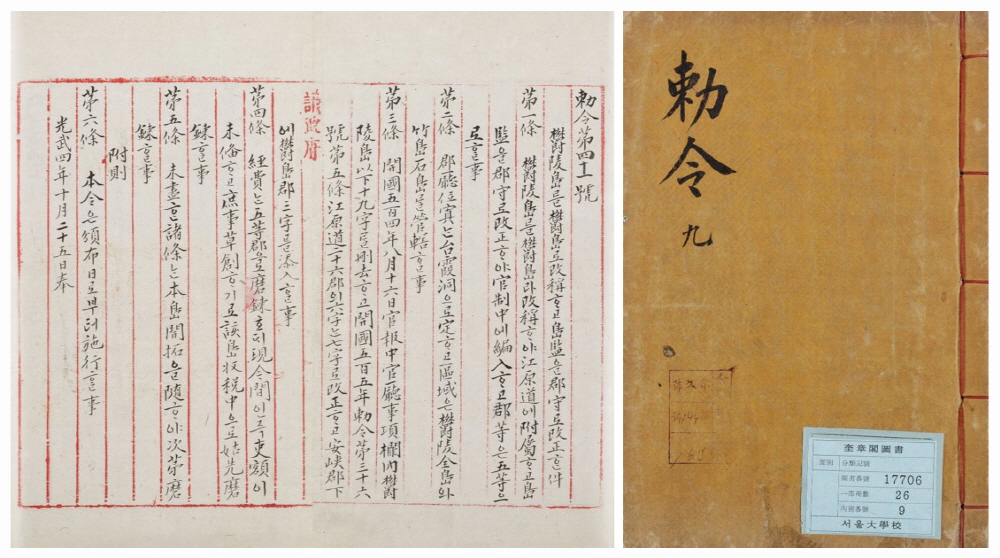 勅令第四十一號
欝陵島를欝島로改稱ᄒᆞ고島監을郡守로改正ᄒᆞᆫ件
第一條 欝陵島를欝島라改稱ᄒᆞ야江原道에附屬ᄒᆞ고島
監을郡守로改正ᄒᆞ야官制中에編入ᄒᆞ고郡等은五等으
로ᄒᆞᆯ事
第二條 郡廳位寘ᄂᆞᆫ台霞洞으로定ᄒᆞ고區域은欝陵全島와
竹島石島를管轄ᄒᆞᆯ事
第三條 開國五百四年八月十六日官報中官廳事項欄內欝
陵島以下十九字를刪去ᄒᆞ고開國五百五年勅令第三十六
號第五條江原道二十六郡의六字ᄂᆞᆫ七字로改正ᄒᆞ고安峽郡下
議政府
에欝島郡三字를添入ᄒᆞᆯ事
第四條 經費ᄂᆞᆫ五等郡으로磨鍊호ᄃᆡ現今間인즉吏額이
未備ᄒᆞ고庶事草創ᄒᆞ기로該島收稅中으로姑先磨
鍊ᄒᆞᆯ事
第五條 未盡ᄒᆞᆫ諸條ᄂᆞᆫ本島開拓을隨ᄒᆞ야次第磨
鍊ᄒᆞᆯ事
附則
第六條 本令은頒布日로부터施行ᄒᆞᆯ事
光武四年十月二十五日奉
勅令 九
奎章閣圖書
類別 分類記號
圖書番號 17706
一部冊數 26
內冊番號 9
서울大學校